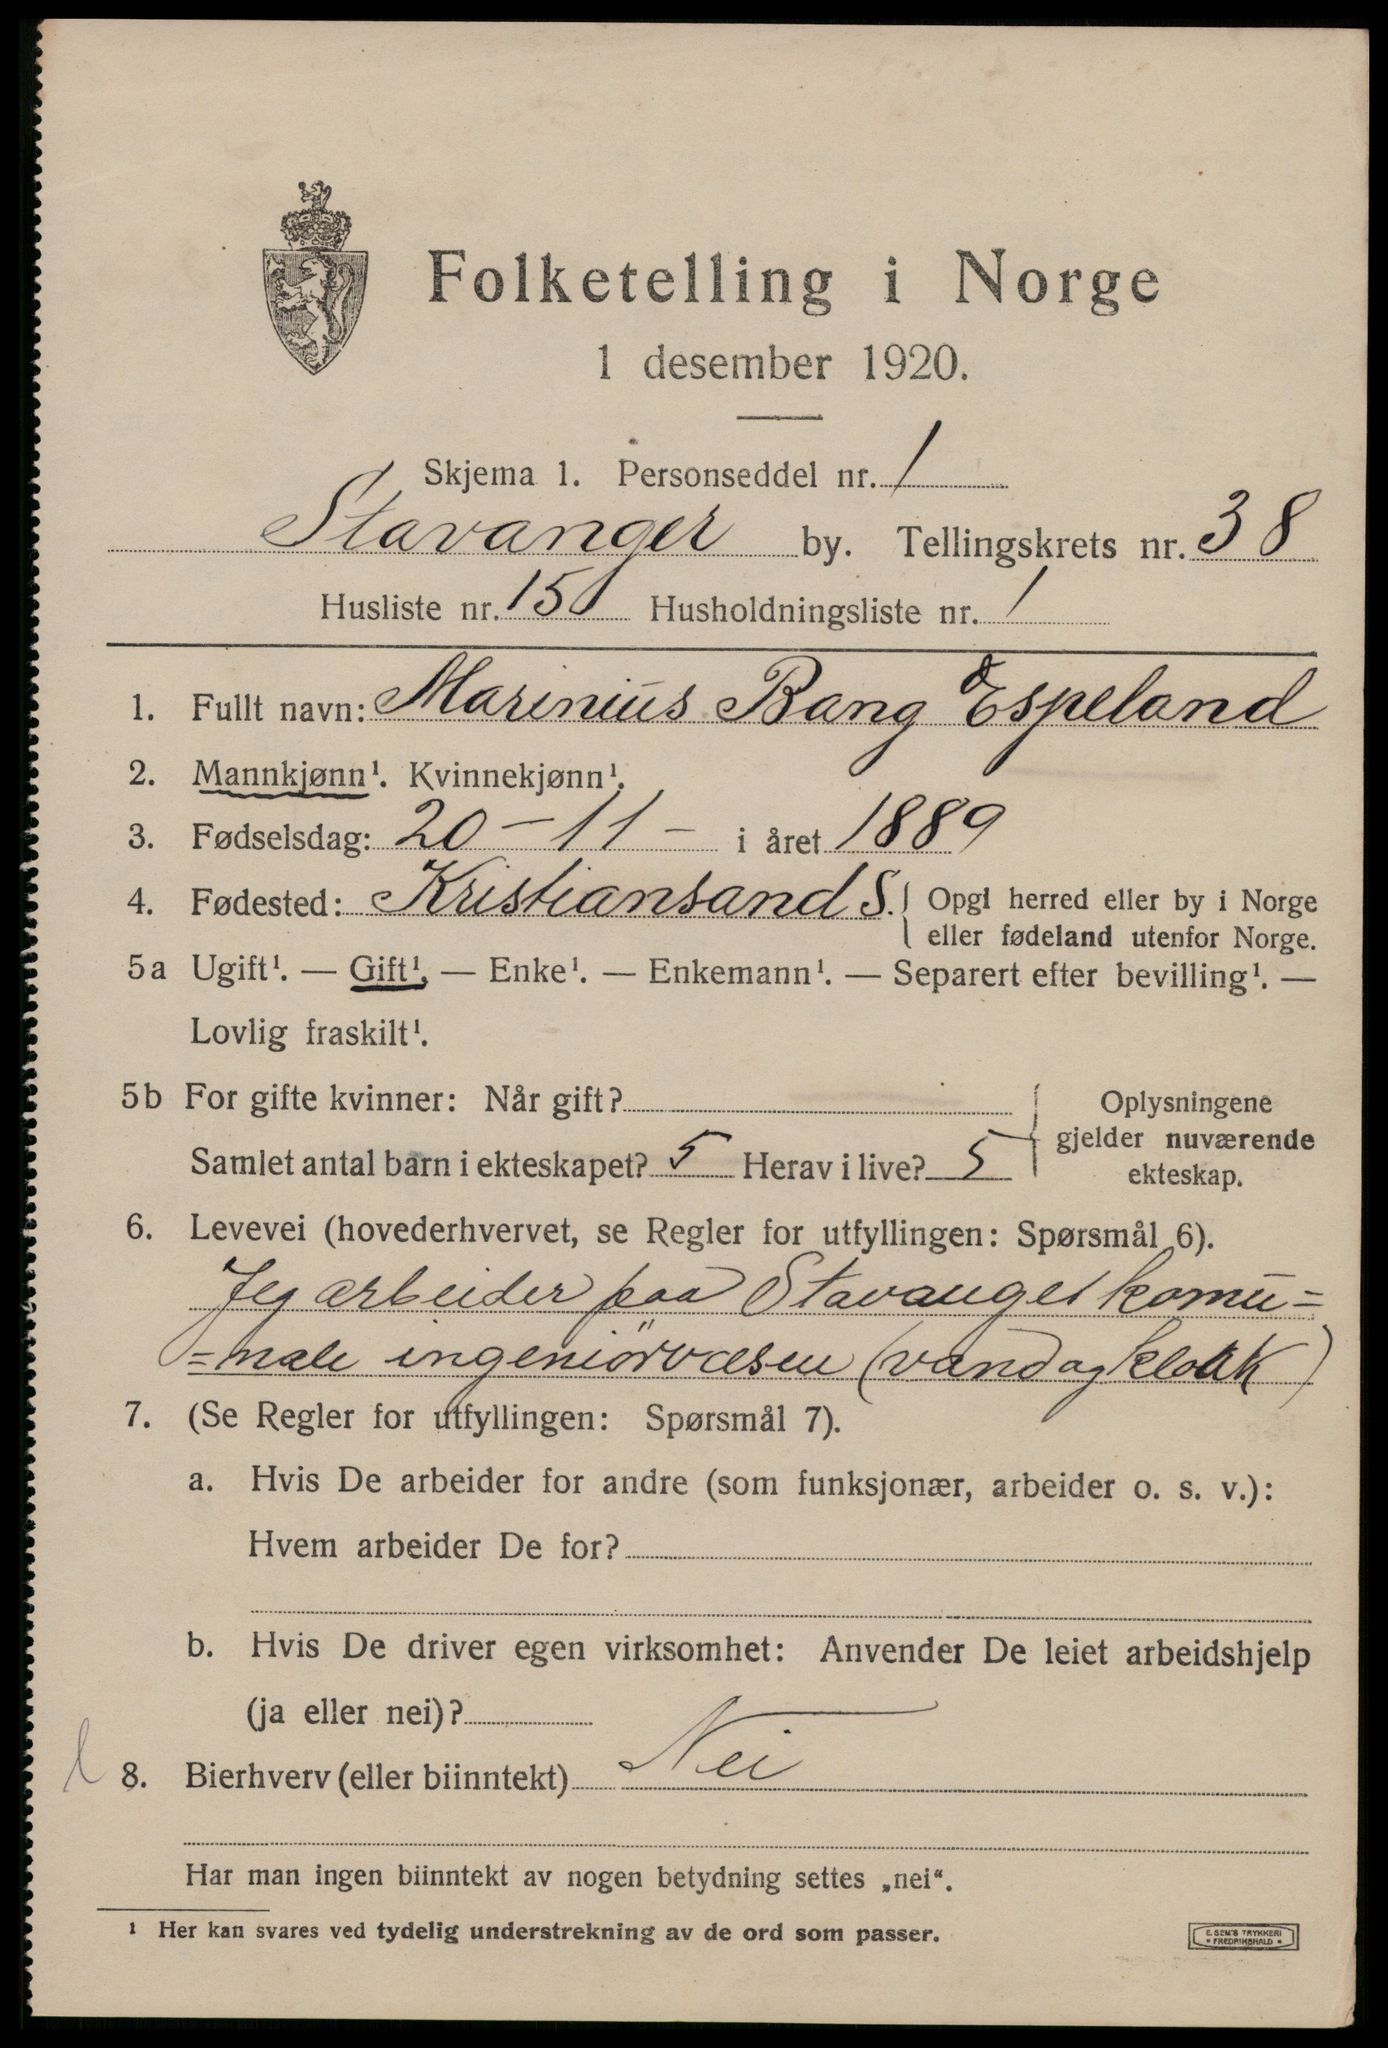 Folketelling i Norge
1 desember 1920.
Skjema 1. Personseddel nr. 1
Stavanger by. Tellingskrets nr. 38
Husliste nr. 151 Husholdningsliste nr. 1
1. Fullt navn: Marinius Bang Espeland
2. Mannkjønn¹. Kvinnekjønn¹.
3. Fødselsdag: 20 - 11 - i året 1889
4. Fødested: Kristiansand S. Opgi herred eller by i Norge
eller fødeland utenfor Norge.
5a Ugift¹. — Gift¹. — Enke¹. — Enkemann¹. — Separert efter bevilling¹. —
Lovlig fraskilt¹.
5b For gifte kvinner: Når gift? Oplysningene
gjelder nuværende
Samlet antal barn i ekteskapet? 5 Herav i live? 5
ekteskap.
6. Levevei (hovederhvervet, se Regler for utfyllingen: Spørsmål 6).
Jeg arbeider paa Stavanger komu=
=nale ingeniørvæsen (vand og kloak)
7. (Se Regler for utfyllingen: Spørsmål 7).
a. Hvis De arbeider for andre (som funksjonær, arbeider o. s. v.):
Hvem arbeider De for?
b. Hvis De driver egen virksomhet: Anvender De leiet arbeidshjelp
(ja eller nei)?
8. Bierhverv (eller biinntekt) Nei
Har man ingen biinntekt av nogen betydning settes „nei“.
¹ Her kan svares ved tydelig understrekning av de ord som passer.
E. SEM'S TRYKKERI
FREDRIKSHALD